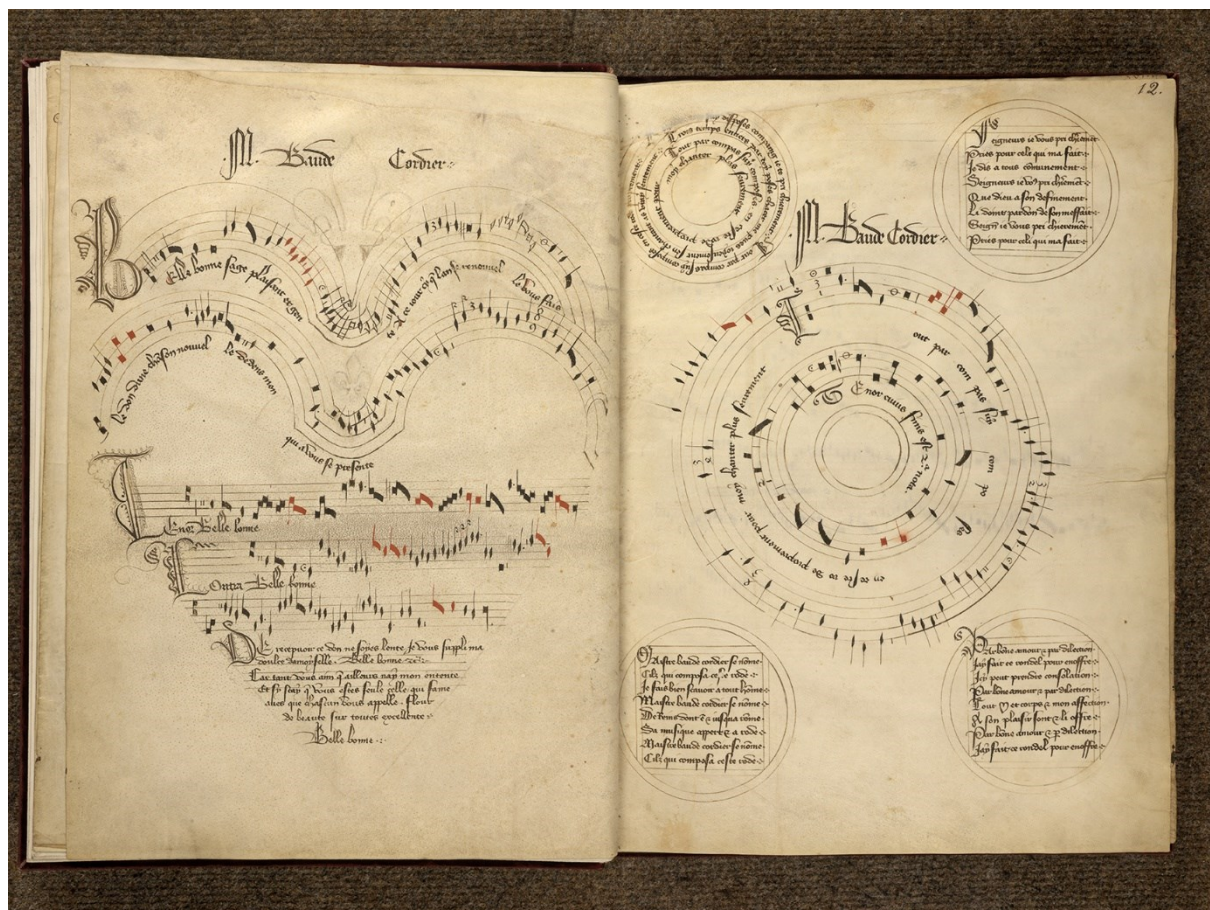 M. Baude Cordier
Belle bonne sage plaisant et gen
te A ce jour cy que lan se renouvel
Le vous fais
le don dune chanson nouvel le Dedens mon
qui a vous se presente
Tenor Belle bonne
Contra Belle bonne
De recepvoir ce don ne soyes lente Je vous suppli ma
doulce damoyselle. Belle bonne etc
Car tant vous aim qaillours nay mon entente
Et sy scay q vous estes seule celle qui fame
aves que chascun vous appelle. flour
de beaute sur toutes excellente
Belle bonne
12.
Trois temps entiers par toy posés
chanter
Tout par compas suy composés en ceste rode proprement pour moy chanter plus seurement
Seigneurs ie vous pri chierement
Pries pour celi qui ma fait
Je dis a tous comunement
Seigneurs ie vos pri chierement
Que dieu a son definement
Li doint pardon de son meffait
Seigns ie vous pri chierement
Pries pour celi qui ma fait
M. Baude Cordier
Tout par com pas suy com po ses
en ceste ro de proprement pour moy chanter plus seurement
Tenor cuius finis est 2a nota.
Maistre baude cordier se nome
Cilz qui composa ceste rode
Je fais bien scavoir a tout home
Maistre baude cordier se nome
De Reins dont est et jusqua rome
Sa musique appert et a rode
Maistre baude cordier se nome
Cilz qui composa ceste rode
Par bone amour et par dilection
Jay fait ce rondel pour en offre
Icy peut prendre consolation
Par bone amour et par dilection
Tout et corps et mon affection
A son plaisir sont et li offre
Par bone amour et p dilection
Jay fait ce rondel pour en offre